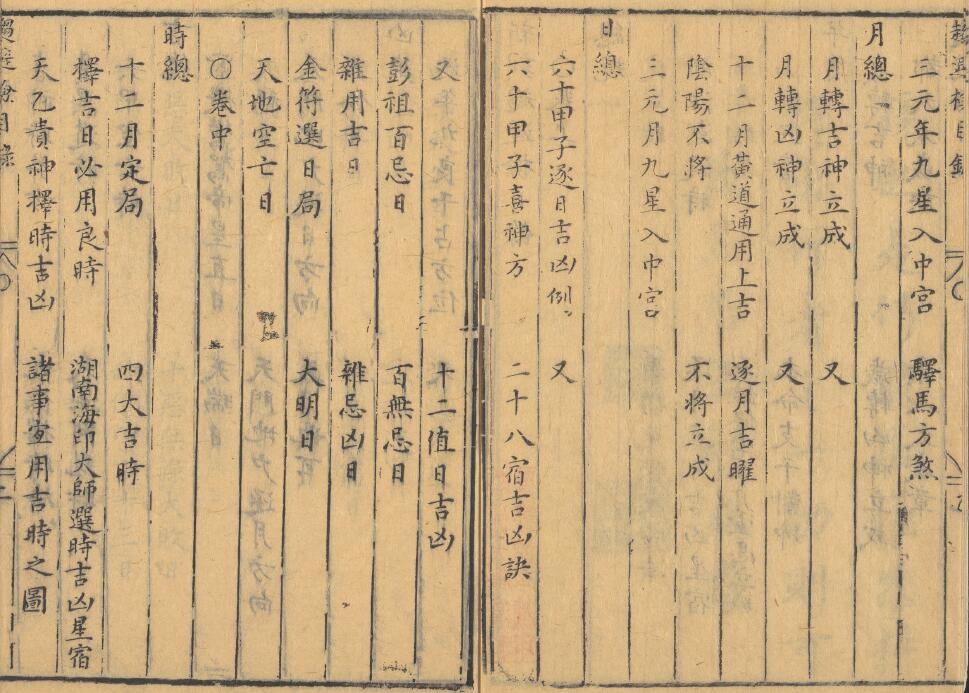 三元年九星入中宫　驛馬方煞
月總
月轉吉神立成　又
月轉凶神立成　又
十二月黃道通用上吉　逐月吉曜
陰陽不將　不將立成
三元月九星入中宮
日總
六十甲子逐日吉凶例　又
六十甲子喜神方　二十八宿吉凶訣
又　十二值日吉凶
彭祖百忌日　百無忌日
雜用吉日　雜忌凶日
金符選日局　大明日
天地空亡日
〇卷中
時總
十二月定局　四大吉時
擇吉日必用良時　湖南海印大師選時吉凶星宿
天乙貴神擇時吉凶　諸事宜用吉時之圖